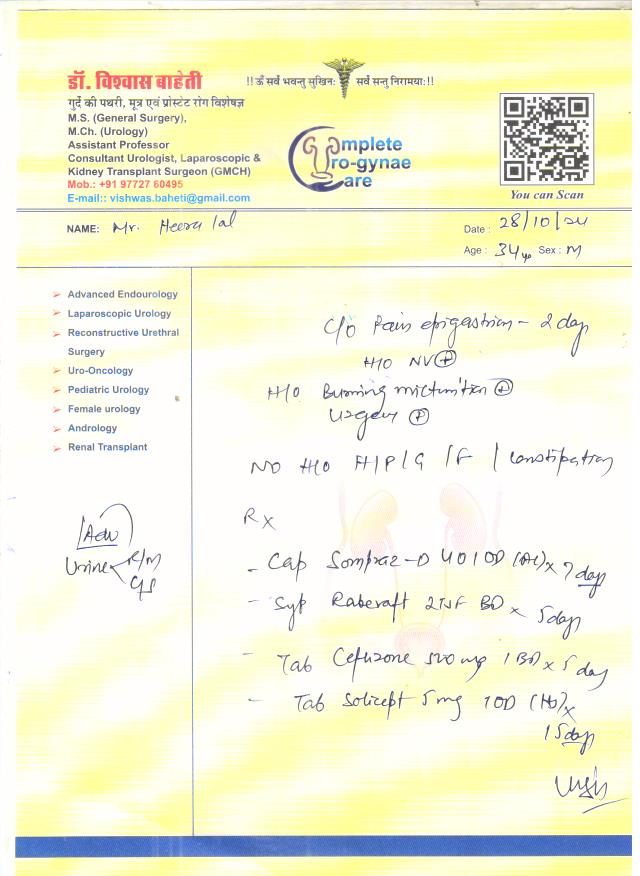 डॉ. विश्वास बाहेती
गुर्दे की पथरी, मूत्र एवं प्रोस्टेट रोग विशेषज्ञ
M.S. (General Surgery),
M.Ch. (Urology)
Assistant Professor
Consultant Urologist, Laparoscopic &
Kidney Transplant Surgeon (GMCH)
Mob.: +91 97727 60495
E-mail:: vishwas.baheti@gmail.com
!!ॐ सर्वे भवन्तु सुखिनः सर्वे सन्तु निरामयाः!!
Complete
Uro-gynae
Care
You can Scan
NAME: Mr. Heera lal
Date : 28/10/24
Age : 34 yo Sex : M
Advanced Endourology
Laparoscopic Urology
Reconstructive Urethral
Surgery
Uro-Oncology
Pediatric Urology
Female urology
Andrology
Renal Transplant
Adv
Urine R/M
C/S
C/O Pain epigastrium - 2 day
H/O NV +
H/O Burning micturition +
Urgency +
NO H/O H/P/G /F / Constipation
Rx
- Cap Sompraz-D 40 1 OD (AC) x 7 day
- Syp Rabecraft 2TSF BD x 5 day
- Tab Cefuzone 500 mg 1 BD x 5 day
- Tab Solicept 5 mg 1 OD (HS) x
15 day